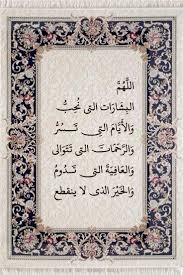 اللَّهُمَّ
البِشَارَات التي نُحِبُّ
وَالأَيَّام التِي تَسُرُّ
وَالرَّحَمَات التي تَتَوَالى
وَالعَافِيَة التي تَدُومُ
وَالخَيْرَ الذي لا يَنقطِع